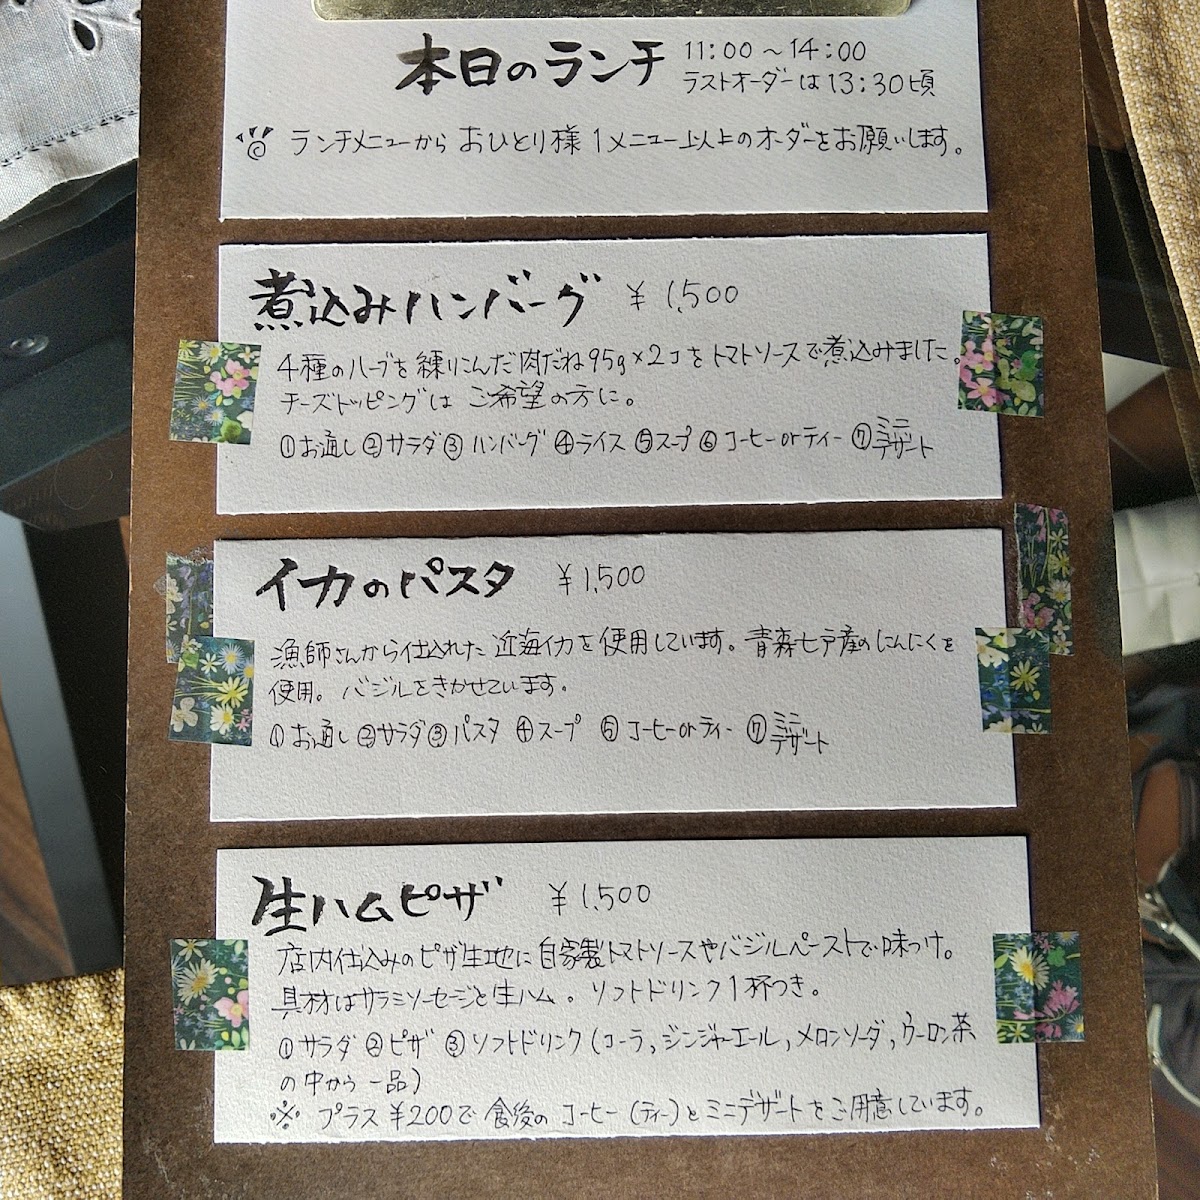 本日のランチ 11:00～14:00
ラストオーダーは13:30頃
ランチメニューから おひとり様 1メニュー以上のオーダーをお願いします。
煮込みハンバーグ ¥1,500
4種のハーブを練りこんだ肉だね95g×2コをトマトソースで煮込みました。
チーズトッピングは ご希望の方に。
①お通し ②サラダ ③ハンバーグ ④ライス ⑤スープ ⑥コーヒーorティー ⑦ミニデザート
イカのパスタ ¥1,500
漁師さんから仕込れた近海イカを使用しています。青森七戸産のにんにくを
使用。バジルをきかせています。
①お通し ②サラダ ③パスタ ④スープ ⑤コーヒーorティー ⑦ミニデザート
生ハムピザ ¥1,500
店内仕込みのピザ生地に自家製トマトソースやバジルペーストで味つけ。
具材はサラミソーセージと生ハム。ソフトドリンク1杯つき。
①サラダ ②ピザ ③ソフトドリンク(コーラ,ジンジャーエール,メロンソーダ,ウーロン茶
の中から一品)
※ プラス¥200で食後のコーヒー(ティー)とミニデザートをご用意しています。